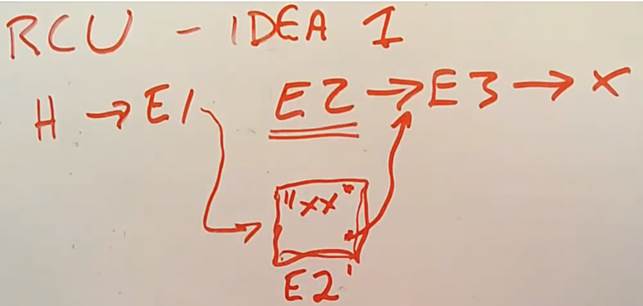 RCU - IDEA 1
H → E1 E2 → E3 → X
"xx"
E2'